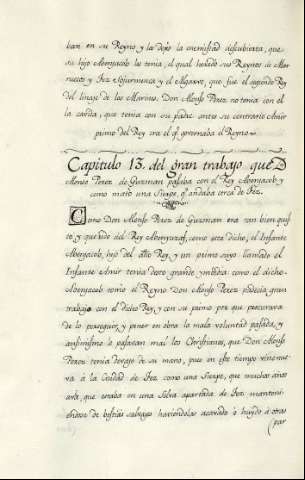 ban en su Reyno y la dejo la enemistad descubierta, que
su hijo Abenjacob les tenia, el qual heredo sus Reynos de Mar
ruecos y Fez Sojurmenca y el Algarve, que fue el segundo Rey
del linaje de los Marinos. Don Alonso Perez no tenia con el
la cavida, que tenia con su padre antes su contrario Amir
primo del Rey era el q. governaba el Reyno.
Capitulo 13. del gran trabajo que D
Alonso Perez de Guzman passaba con el Rey Abenjacob y
como mató una Sierpe q. andaba cerca de Fez.
Como Don Alonso Perez de Guzman era tan bien quis
to y querido del Rey Abenyuzaf, como esta dicho, el Infante
Abenjacob, hijo del dicho Rey, y un primo suyo llamado el
Infante Amir tenia dello grande ymbidia como el dicho
Abenjacob tenia el Reyno Don Alonso Perez padecia gran
trabajo con el dicho Rey, y con su primo por que procuraba
de lo perseguir, y poner en obra la mala voluntad pasada, y
assimismo a passaban mal los Christianos, que Don Alonso
Perez tenia consigo a su mano, pues en este tiempo vino
a la Ciudad de Fez como una Sierpe, que muchos años
avia, que estaba en una Silva apartada de Fez manteni
endose de bestias salvages haviendolas acavado o huido a otras
(par